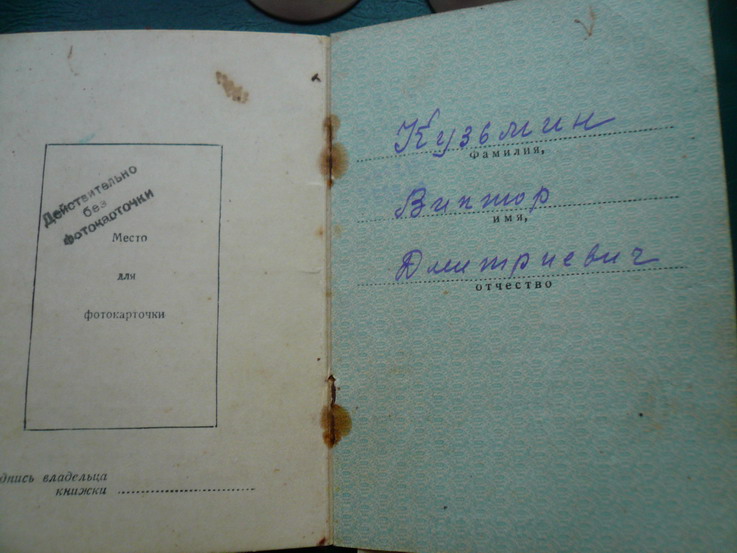 Действительно
без
фотокарточки
Место
для
фотокарточки
дпись владельца
книжки
Кузьмин
Фамилия,
Виктор
имя,
Дмитриевич
отчество